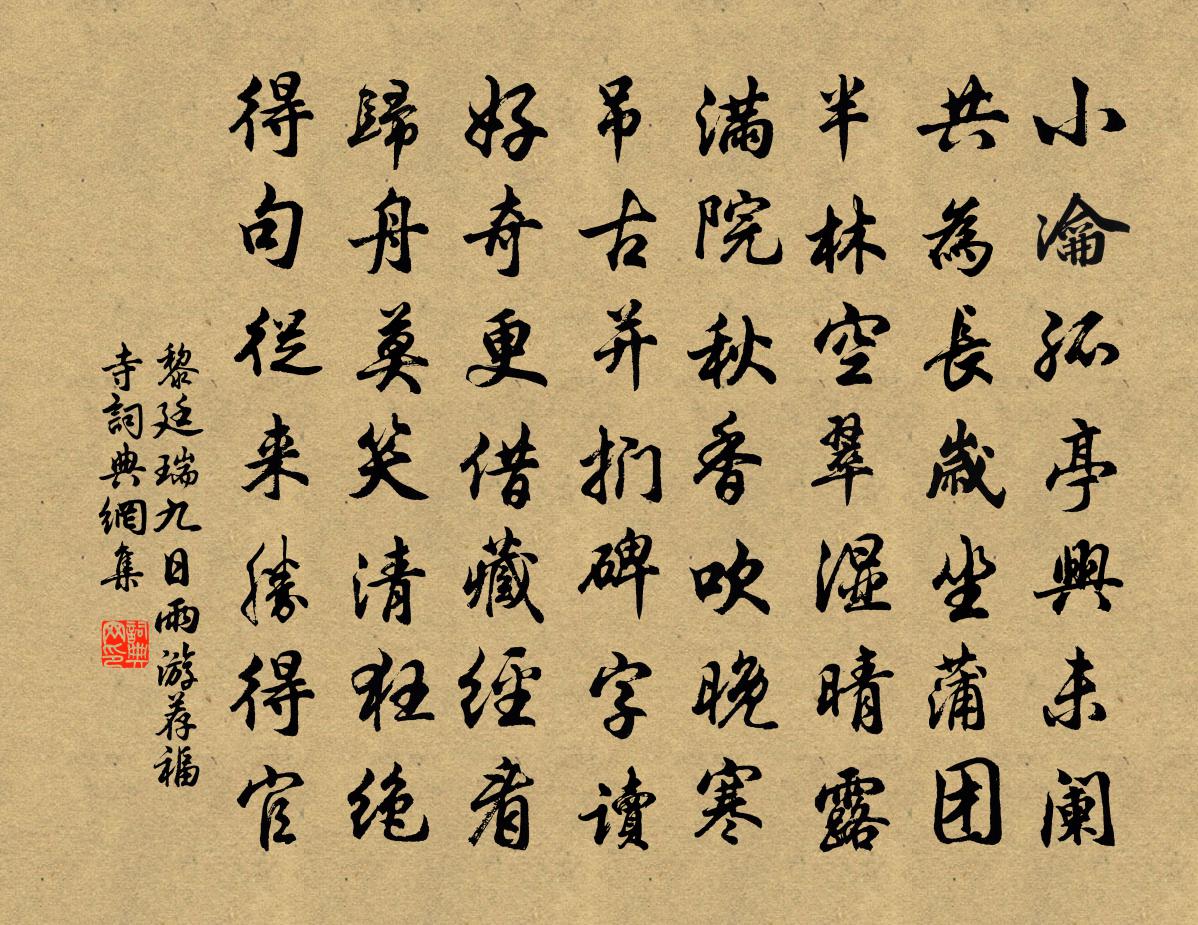 小瀹孤亭興未阑
共為長歲坐蒲团
半林空翠湿晴露
满院秋香吹晚寒
吊古并捫碑字讀
好奇更借藏經看
歸舟莫笑清狂绝
得句從来勝得官
黎廷瑞九日雨游荐福
寺詞典網集
詞典网印